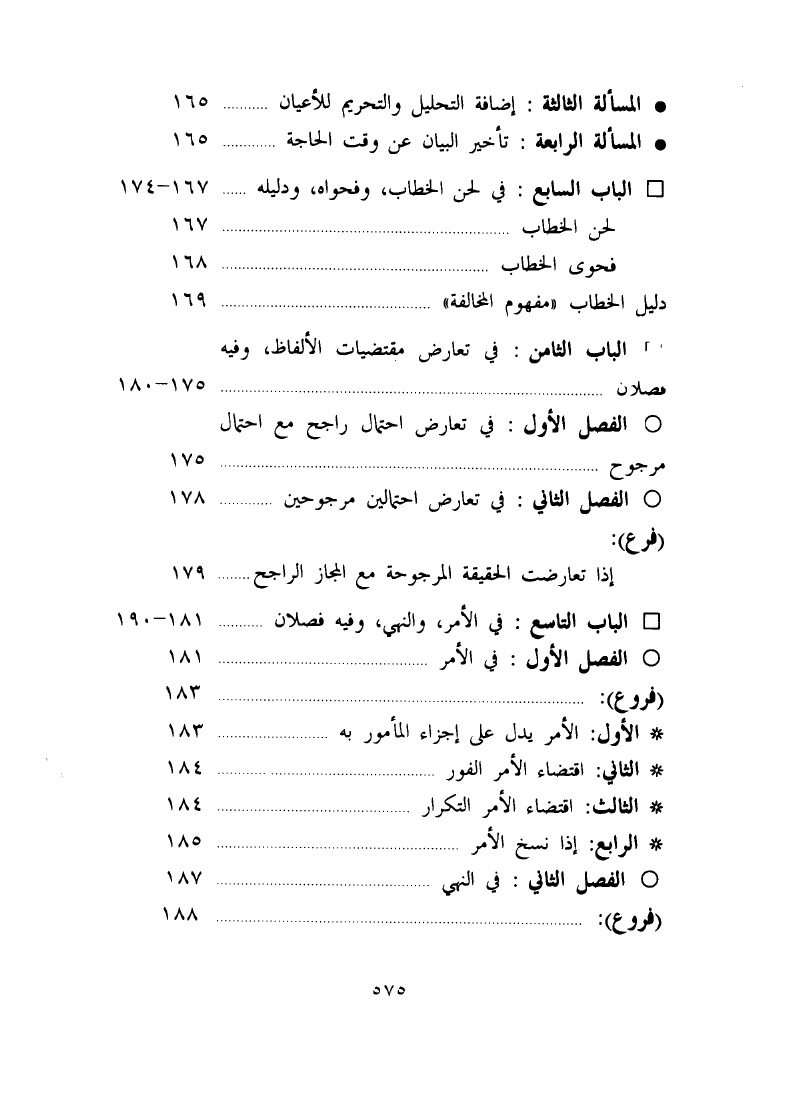 ● المسألة الثالثة : إضافة التحليل والتحريم للأعيان .......... ١٦٥
● المسألة الرابعة : تأخير البيان عن وقت الحاجة .......... ١٦٥
□ الباب السابع : في لحن الخطاب، وفحواه، ودليله ...... ١٦٧–١٧٤
لحن الخطاب .......... ١٦٧
فحوى الخطاب .......... ١٦٨
دليل الخطاب «مفهوم المخالفة» .......... ١٦٩
الباب الثامن : في تعارض مقتضيات الألفاظ، وفيه
فصلان .......... ١٧٥–١٨٠
○ الفصل الأول : في تعارض احتمال راجح مع احتمال
مرجوح .......... ١٧٥
○ الفصل الثاني : في تعارض احتمالين مرجوحين .......... ١٧٨
(فرع):
إذا تعارضت الحقيقة المرجوحة مع المجاز الراجح ........ ١٧٩
□ الباب التاسع : في الأمر، والنهي، وفيه فصلان .......... ١٨١–١٩٠
○ الفصل الأول : في الأمر .......... ١٨١
(فروع): .......... ١٨٣
* الأول: الأمر يدل على إجزاء المأمور به .......... ١٨٣
* الثاني: اقتضاء الأمر الفور .......... ١٨٤
* الثالث: اقتضاء الأمر التكرار .......... ١٨٤
* الرابع: إذا نسخ الأمر .......... ١٨٥
○ الفصل الثاني : في النهي .......... ١٨٧
(فروع): .......... ١٨٨
٥٧٥